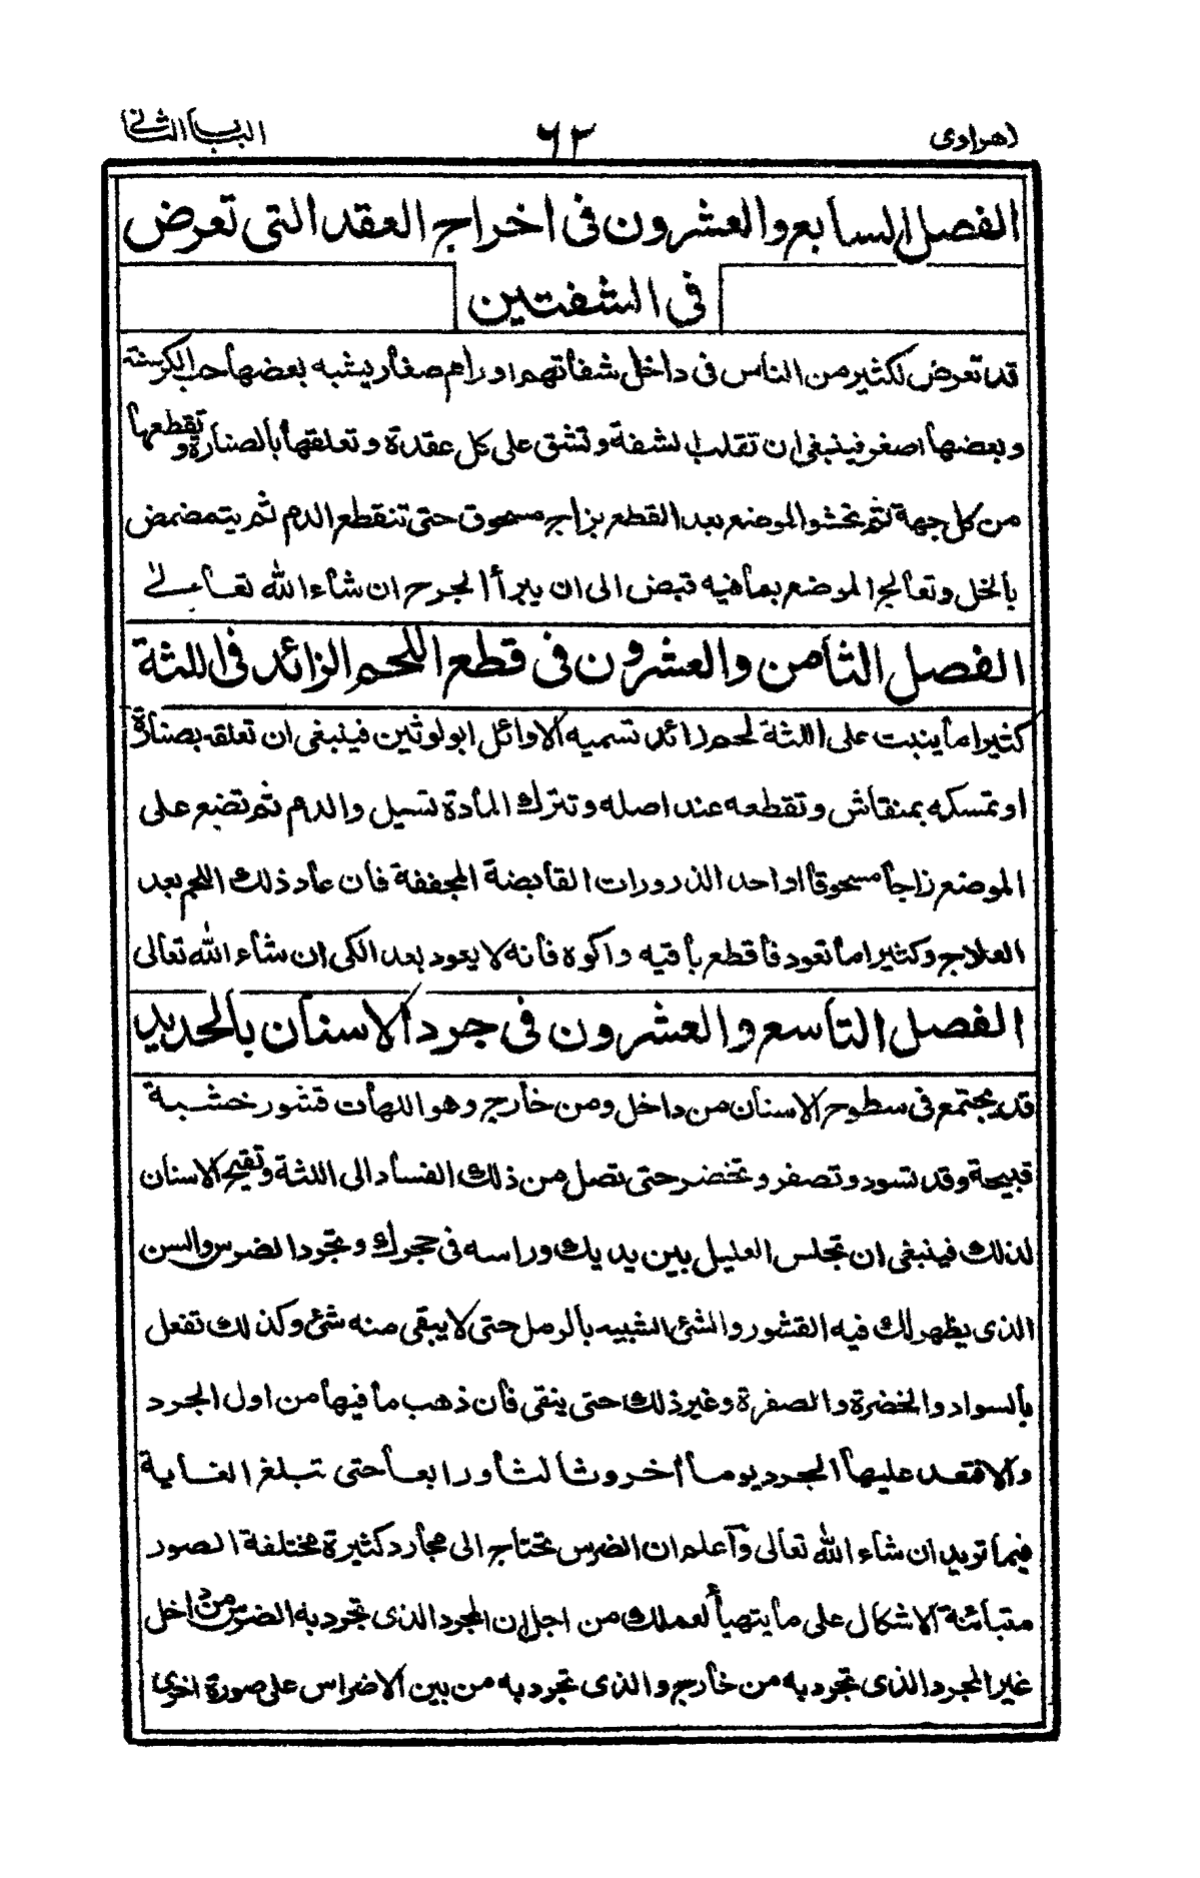 زهراوى ٦٢ الباب الثانى
الفصل السابع والعشرون فى اخراج العقد التى تعرض
فى الشفتين
قد تعرض لكثير من الناس فى داخل شفاتهم اورام صغار يشبه بعضها حب الكرسنة
وبعضها اصغر فينبغى ان تقلب الشفة وتشق على كل عقدة وتعلقها بالصنارة وتقطعها
من كل جهة ثم تحشو الموضع بعد القطع بزاج مسحوق حتى تنقطع الدم ثم يتمضمض
بالخل وتعالج الموضع بما فيه قبض الى ان يبرأ الجرح ان شاء الله تعالى
الفصل الثامن والعشرون فى قطع اللحم الزائد فى اللثة
كثيرا ما ينبت على اللثة لحم زائد تسميه الاوائل ابولوثين فينبغى ان تعلقه بصنارة
او تمسكه بمنقاش وتقطعه عند اصله وتترك المادة تسيل والدم ثم تضع على
الموضع زاجا مسحوقا او احد الذرورات القابضة المجففة فان عاد ذلك اللحم بعد
العلاج وكثيرا ما تعود فاقطع باقيه واكوه فانه لا يعود بعد الكى ان شاء الله تعالى
الفصل التاسع والعشرون فى جرد الاسنان بالحديد
قد يجتمع فى سطوح الاسنان من داخل ومن خارج وهو اللهات قشور خشبة
قبيحة وقد تسود وتصفر وتخضر حتى تصل من ذلك الفساد الى اللثة وتقيح الاسنان
لذلك فينبغى ان تجلس العليل بين يديك وراسه فى حجرك وتجرد الضرس والسن
الذى يظهر لك فيه القشور والشئ الشبيه بالرمل حتى لا يبقى منه شئ وكذلك تفعل
بالسواد والخضرة والصفرة وغير ذلك حتى ينقى فان ذهب ما فيها من اول الجرد
والا فتعد عليها الجرد يوما أخر وثالثا ورابعا حتى تبلغ الغاية
فيما تريد ان شاء الله تعالى وآعلم ان الضرس تحتاج الى مجارد كثيرة مختلفة الصور
متبائنة الاشكال على ما يتهيأ لعملك من اجل ان المجرد الذى تجرد به الضرس من داخل
غير المجرد الذى تجرد به من خارج والذى تجرد به من بين الاضراس على صورة اخرى